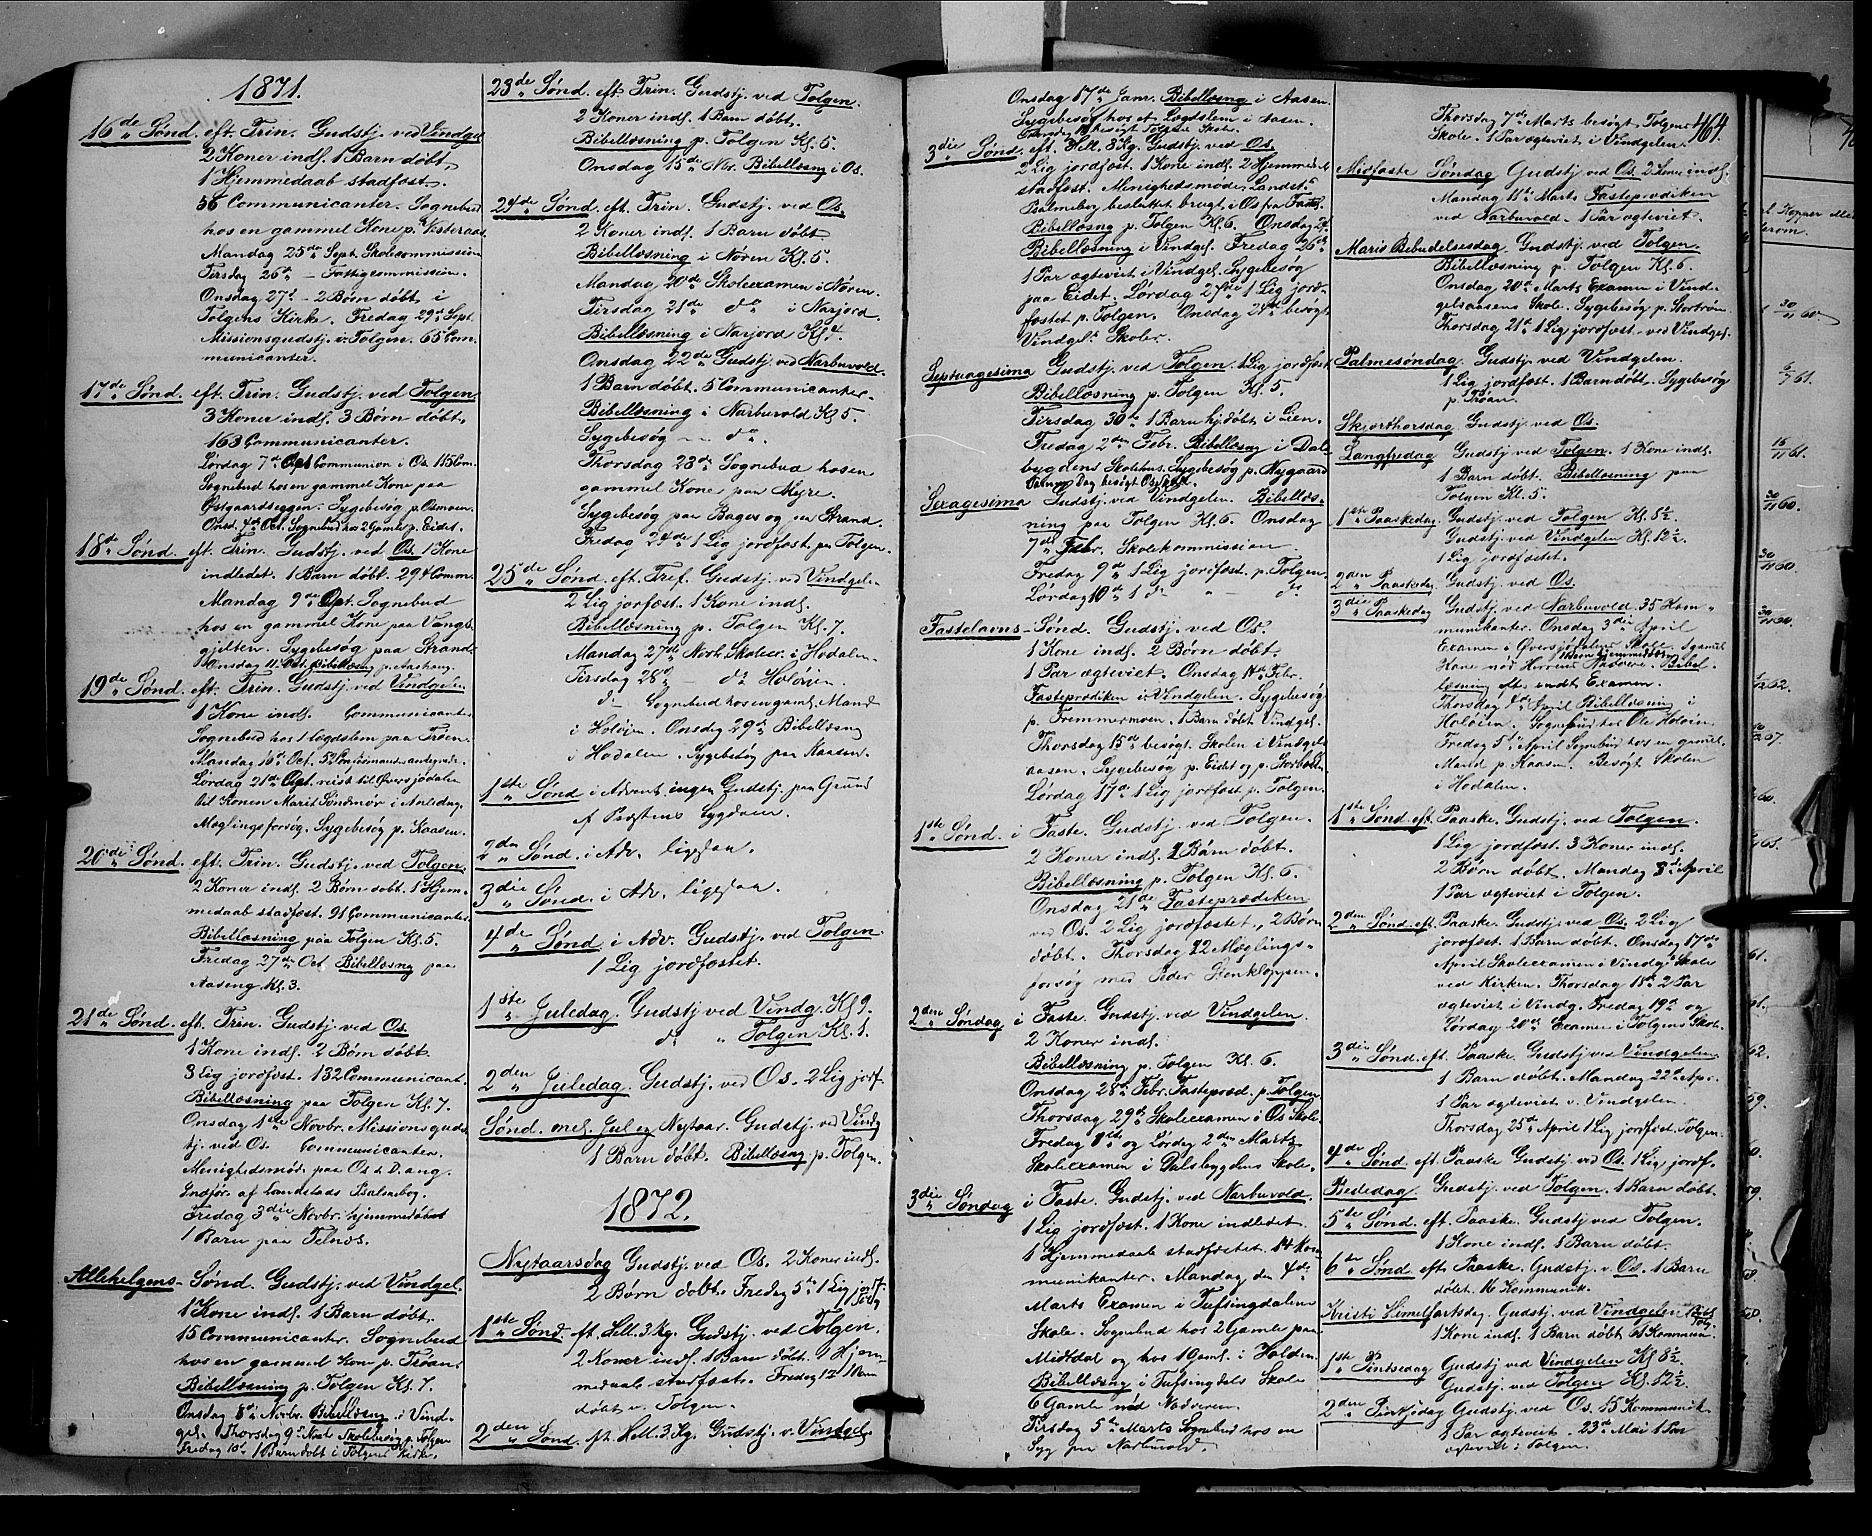 1871.
16de Sønd. eft. Trin. Gudstj. ved Vindgel
2 Koner indl. 1 Barn døbt,
1 Hjemmedaab stadfæst.
56 Communicanter. Sognebud
hos en gammel Kone p. Vesteraas.
Mandag 25de Sept. Skolecommission
Tirsdag 26de — Fattigcommission.
Onsdag 27de - 2 Børn døbt i
Tolgens Kirke. Fredag 29de Sept.
Missionsgudstj. i Tolgen. 65 Com-
municanter.
17de Sønd. eft. Trin. Gudstj. ved Tolgen
3 Koner indl. 3 Børn døbt,
163 Communicanter.
Lørdag 7de Oct Communion i Os. 115 Com.
Sognebud hos en gammel Kone paa
Østgaardseggen. Sygebesøg p. Osmoen
Onsd. 4de Oct. Sognebud hos 2 Gamle p. Eidet.
18de Sønd. eft. Trin. Gudstj. ved Os. 1 Kone
indledet. 1 Barn døbt. 294 Comm.
Mandag 9de Oct. Sognebud
hos en gammel Kone paa Vangs-
gjelten. Sygebesøg paa Strand
Onsdag 11. Oct. Bibellæsng p. Aashaug.
19de Sønd. eft. Trin. Gudstj. ved Vindgelen
1 Kone indl. Communicant.
Sognebud hos 1 Lægdslem paa Trøen
Mandag 16de Oct.
Lørdag 21de Oct. reist til Øversjødalen
til Konen Marit Søndmør i
Mæglingsforsøg. Sygebesøg p. Kaasen.
20de Sønd. eft. Trin. Gudstj. ved Tolgen
2 Koner indl. 2 Børn døbt. 1 Hjem-
medaab stadfæst. 91 Communicanter.
Bibellæsning paa Tolgen Kl. 5.
Fredag 27de Oct. Bibellæsng paa
Aaseng. Kl. 3.
21de Sønd. eft. Trin. Gudstj. ved Os
1 Kone indl. 2 Børn døbt.
3 Lig jordfæst. 132 Communicant.
Bibellæsning paa Tolgen Kl. 7.
Onsdag 1ste Novbr. Missionsguds-
tj. ved Os. Communicanter.
Menighedsmøde paa Os & D. ang.
Indfør. af Landstads Psalmebog.
Fredag 3die Novbr. hjemmedøbt
1 Barn paa Telnæs.
Allehelgens- Sønd. Gudstj. ved Vindgel.
1 Kone indl. 1 Barn døbt.
15 Communicanter. Sognebud
hos en gammel Kone p. Trøan.
Bibellæsning p. Tolgen Kl. 7.
Onsdag 8de Novbr. Bibellæsng i Vind-
gel. Thorsdag 9de Skolebesøg p. Tolgen
Fredag 10de 1 Barn døbt i Tolgens Kirke.
23de Sønd. eft. Trin. Gudstj. ved Tolgen.
2 Koner indl. 1 Barn døbt.
Bibellæsning p. Tolgen Kl. 5.
Onsdag 15de Nbr. Bibellæsng i Os.
24de Sønd. eft. Trin. Gudstj. ved Os.
2 Koner indl. 1 Barn døbt.
Bibellæsning i Nøren Kl. 5.
Mandag 20de Skoleexamen i Nøren.
Tirsdag 21de do i Narjord.
Bibellæsning i Narjord Kl. 4.
Onsdag 22de Gudstj. ved Narbuvold.
1 Barn døbt. 5 Communicanter.
Bibellæsning i Narbuvold Kl 5.
Sygebesøg — do.
Thorsdag 23de Sognebud hos en
gammel Kone paa Myre.
Sygebesøg paa Bager og paa Strand.
Fredag 24de 1 Lig jordfæst. paa Tolgen.
25de Sønd. eft. Tref. Gudstj. ved Vindgele-
2 Lig jorfæst. 1 Kone indl.
Bibellæsning p. Tolgen Kl. 7.
Mandag 27de Novb. Skoleex. i Hodalen.
Tirsdag 28de — do Holøien.
do — Sognebud hos en gaml. Mand
i Holøien. Onsdag 29de Bibellæsng
i Hodalen. Sygebesøg paa Kaasen.
1ste Sønd i Advent ingen Gudstj. paa Grund
af Præstens Sygdom.
2den Sønd. i Adv. ligesaa.
3die Sønd. i Adv. ligesaa.
4de Sønd. i Adv. Gudstj. ved Tolgen.
1 Lig jordfæstet.
1ste Juledag. Gudstj. ved Vindg. Kl 9.
do „ Tolgen Kl. 1.
2den Juledag. Gudstj. ved Os. 2 Lig jorf.
Sønd. mel. Jul og Nytaar. Gudstj. ved Vindg
1 Barn døbt. Bibellæsng p. Tolgen.
1872.
Nytaarsdag Gudstj. ved Os. 2 Koner indl.
2 Børn døbt. Fredag 5te 1 Lig jordf.
Tolg
1ste Sønd. eft Hell. 3 Kg. Gudstj. ved Tolgen.
2 Koner indl. 1 Barn døbt. 1 Hjem-
medaab stadfæst. Fredag 12 1 Barn
døbt v. Tolgen.
2den Sønd. eft. Hell. 3 Kg. Gudstj. v. Vindgel.
Onsdag 17de Janr. Bibellæsng i Aasen.
Sygebesøg hos et Lægdslem i Aasen.
Torsdag 18 besøgt Tolgens Skole.
3die Sønd. eft. Hell. 3 Kg. Gudstj. ved Os.
2 Lig jordfæst. 1 Kone indl. 2 Hjemmed.
stadfæst. Menighedsmøde, Landst.s
Psalmebog besluttet brugt i Os fra Faste.
Bibellæsng p. Tolgen Kl. 6. Onsdag 24
Bibellæsning i Vindgel. Fredag d 26de
1 Par ægteviet i Vindgel. Sygebesøg
paa Eidet. Lørdag 27de 1 Lig jord-
fæstet p. Tolgen. Onsdag 24de besøgt
Vindgl.s Skoler.
Septuagesima Gudstj. ved Tolgen. 1 Lig jordfæst
Bibellæsning p. Tolgen Kl. 5.
Tirsdag 30te 1 Barn hj.døbt i Lien.
Fredag 2den Febr. Bibellæsng i Dal-
bygdens Skolehus. Sygebesøg p. Nygaard
Samme Dag besøgt Os Skole.
Sexagesima Gudstj. ved Vindgelen. Bibellæs-
ning paa Tolgen Kl. 6. Onsdag
7de Febr. Skolekommission
Fredag 9de 1 Lig jordfæst. p. Tolgen.
Lørdag 10de 1 do — do
Fastelavns- Sønd. Gudstj. ved Os.
1 Kone indl. 2 Børn døbt.
1 Par ægteviet. Onsdag 14de Febr.
Fasteprædiken v. Vindgelen. Sygebesøg
p. Fremmermoen. 1 Barn døbt Vindgel.
Thorsdag 15de besøgt Skolen i Vindgel-
aasen. Sygebesøg p. Eidet og p.
Lørdag 17de 1 Lig jordfæst p. Tolgen.
1ste Sønd. i Faste. Gudstj. ved Tolgen.
2 Koner indl. 2 Børn døbt.
Bibellæsning p. Tolgen Kl. 6.
Onsdag 21de Fasteprædiken
ved Os. 2 Lig jordfæstet, 2 Børn
døbt. Thorsdag 22 Mæglings-
forsøg med Peder Stenkløppen.
2den Søndag i Faste. Gudstj. ved Vindgelen.
2 Koner indl.
Bibellæsning p. Tolgen Kl. 6.
Onsdag 28de Febr. Fastepræd. p. Tolgen
Thorsdag 29de Skoleexamen i Os Skole.
Fredag 1ste og Lørdag 2den Marts
Skoleexamen i Dalsbygdens Skole.
3die Søndag i Faste. Gudstj. ved Narbuvold.
1 Lig jordfæst. 1 Kone indledet.
1 Hjemmedaab stadfæstet. 14 Kom-
munikanter. Mandag den 4de
Marts Examen i Tufsingdalens
Skole. Sognebud hos 2 Gamle paa
Midtdal og hos 1 Gaml. i Holden
Bibellæsng i Tufsingdals Skole
6 Gamle nød Nadveren.
Tirsdag 5te Marts Sognebud hos en
Syg paa Narbuvold.
464.
Thorsdag 7de Marts besøgt Tolgens
Skole. 1 Par ægteviet i Vindgelen.
Midfaste Søndag Gudstj. ved Os. 2 Koner indl.
Mandag 11te Marts Fasteprædiken
ved Narbuvold. 1 Par ægteviet.
Mariæ Bebudelsesdag. Gudstj. ved Tolgen.
Bibellæsning p. Tolgen Kl. 6.
Onsdag 20de Marts Examen i Vind-
gelsaasens Skole. Sygebesøg p. Stortrøen
Thorsdag 21de 1 Lig jordfæst. ved Vindgel.
Palmesøndag. Gudstj. ved Vindgelen.
1 Lig jordfæst. 1 Barn døbt. Sygebesøg
p. Trøan.
Skjærthorsdag Gudstj. ved Os.
Langfredag Gudstj. ved Tolgen. 1 Kone indl.
1 Barn døbt. Bibellæsning paa
Tolgen Kl. 5.
1ste Paaskedag Gudstj. ved Tolgen Kl. 8½
Gudstj. ved Vindgelen Kl. 12½
1 Lig jordfæstet.
2den Paaskedag Gudstj. ved Os.
3die Paaskedag Gudstj. ved Narbuvold. 35 Kom-
munikanter. Onsdag 3die April
Examen i Øversjødalens Skole. 1 gamel
1 Barn hjemmedøbt
Kone nød Herrens Nadvere. Bibel-
læsning efter endt Examen.
Thorsdag 4de April Bibellæsng i
Holøien. Sognebud hos Ole Holøien.
Fredag 5te April Sognebud hos en gamel
Mand p. Kaasen. Besøgt Skolen
i Hodalen.
1ste Sønd. eft Paaske. Gudstj. ved Tolgen.
1 Lig jordfæst. 3 Koner indl.
2 Børn døbt. Mandag 8de April
1 Par ægteviet i Tolgen.
2den Sønd. eft. Paaske. Gudstj. ved Os. 2 Lig
jordfæst. 1 Barn døbt. Onsdag 17de
April Skoleexamen i Vindg.s Skole
ved Kirken. Thorsdag 18de 2 Par
ægteviet i Vindg. Fredag 19de og
Lørdag 20de Examen i Tolgens Skole.
3die Sønd. eft. Paaske. Gudstj. ved Vindgelen
1 Barn døbt. Mandag 22de Apr.
1 Par ægteviet v. Vindgelen.
Thorsdag 25de April 1 Lig jordfæst Tolgen.
4de Sønd. eft. Paaske Gudstj. ved Os. 1 Lig jordf.
Bededag. Gudstj. ved Tolgen. 1 Barn døbt.
5te Sønd. eft. Paaske. Gudstj. ved Tolgen.
1 Kone indl. 1 Barn døbt.
6te Sønd. eft. Paaske. Gudstj. v. Os. 1 Barn
døbt. 16 Kommunik.
Kristi Himelfartsdag. Gudstj. ved Vindgelen
1 Kone indl. 1 Barn døbt 61 Kommun.
1ste Pintsedag Gudstj. ved Vindgelen Kl 8½.
Gudstj. ved Tolgen Kl. 12½.
2den Pintsedag Gudstj. ved Os. 45 Kommunik-
1 Par ægteviet. 23de Mai 1 Par
ægteviet i Tolgen.